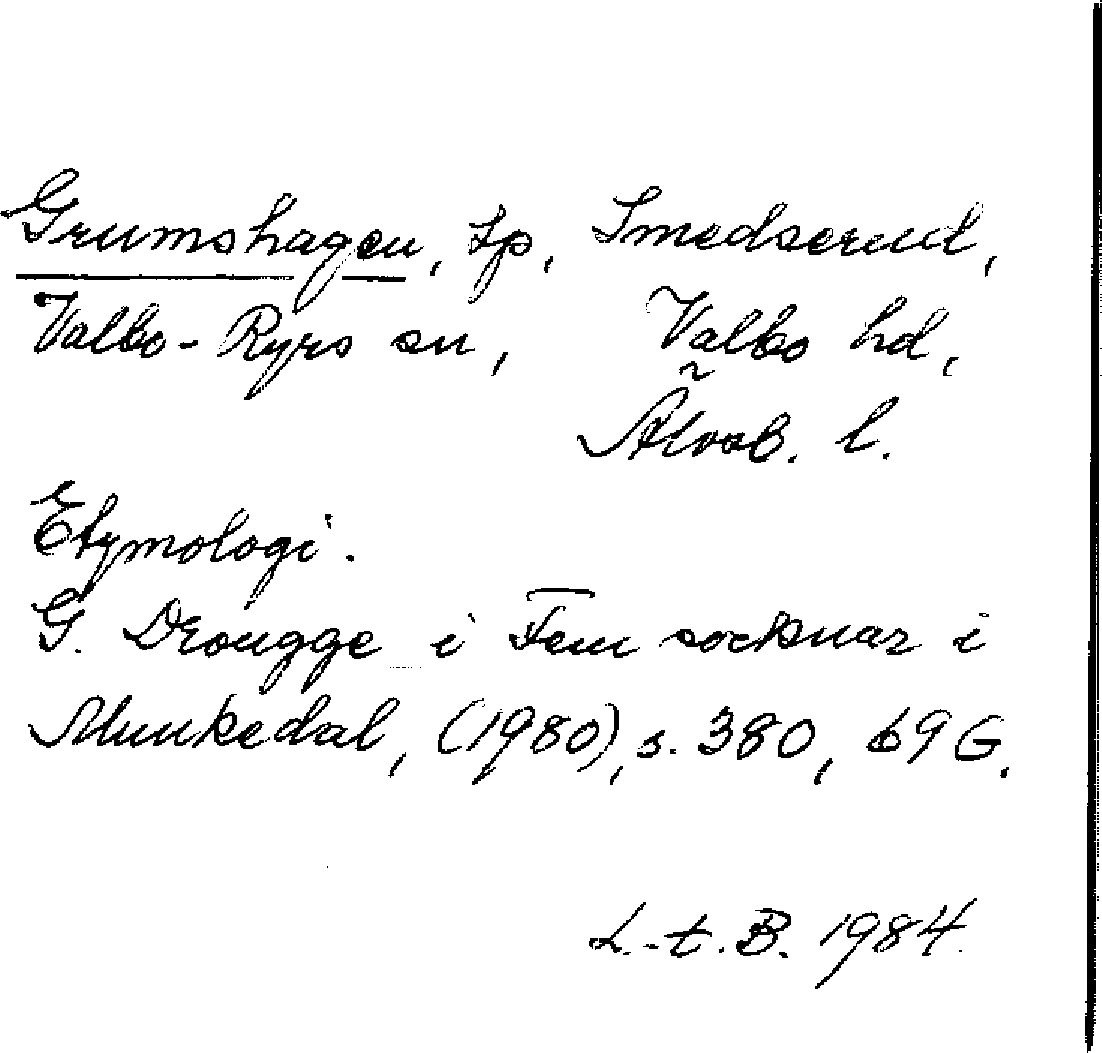 Grumshagen, tp, Smedserud,
Valbo-Ryrs sn, Valbo hd,
Älvsb. l.
Etymologi.
G. Drougge i Fem socknar i
Munkedal, (1980), s. 380, 69 G.
L.-t. B. 1984.